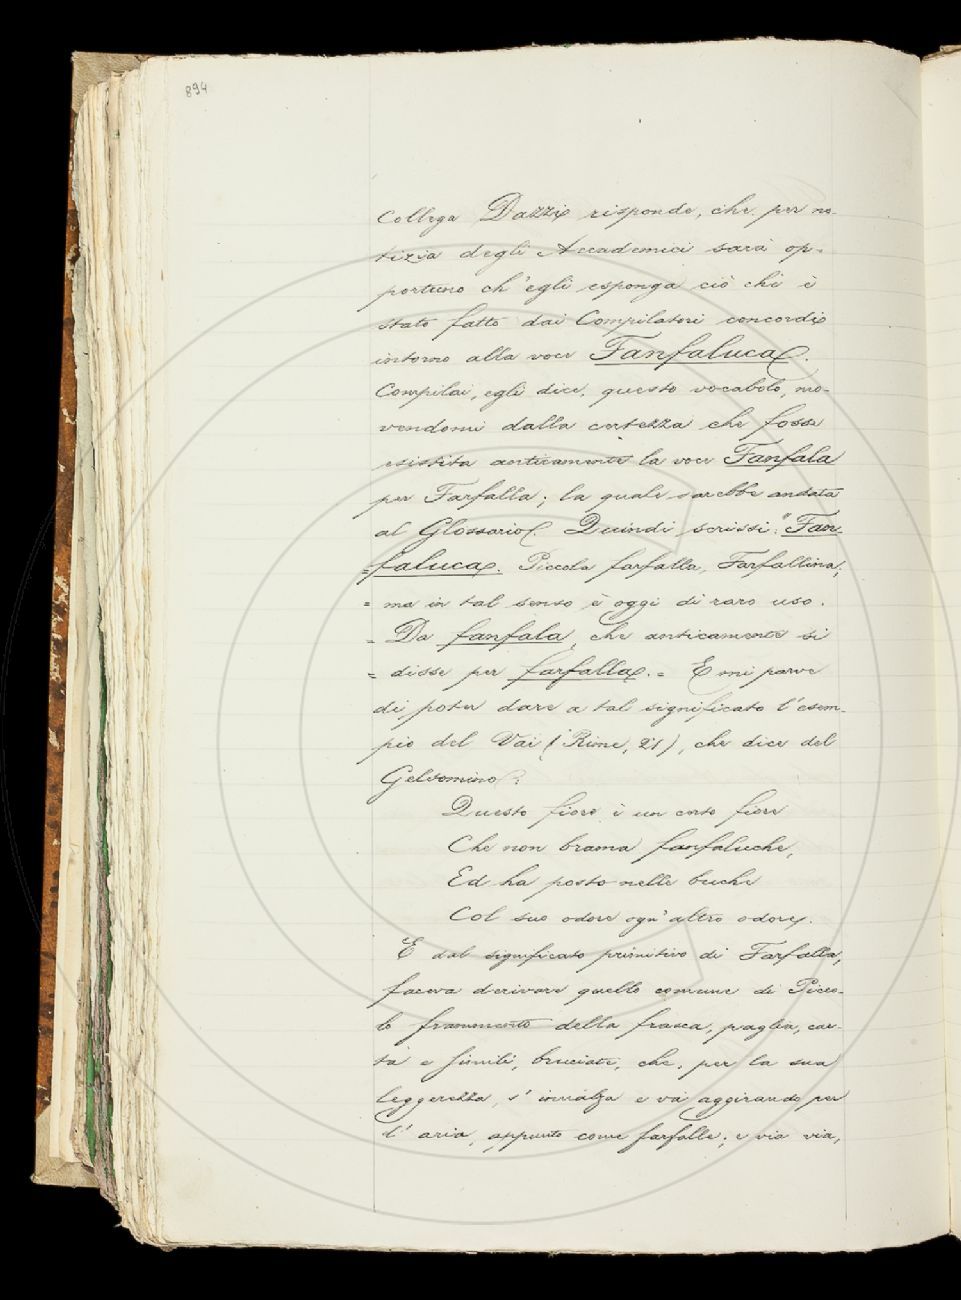 894
Collega Dazzi risponde, che per no-
tizia degli Accademici sarà op-
portuno ch'egli esponga ciò che è
stato fatto dai Compilatori concordi
intorno alla voce Fanfaluca.
Compilai, egli dice, questo vocabolo, mo-
vendomi dalla certezza che fosse
esistita anticamente la voce Fanfala
per Farfalla; la quale sarebbe andata
al Glossario. Quindi scrissi: "Fan-
= faluca. Piccola farfalla, Farfallina;
= ma in tal senso è oggi di raro uso.
= Da fanfala, che anticamente si
= disse per farfalla. = E mi parve
di poter dare a tal significato l'esem-
pio del Vai (Rime, 21), che dice del
Gelsomino:
Questo fiore è un certo fiore
Che non brama fanfaluche,
Ed ha posto nelle buche
Col suo odore ogn'altro odore.
E dal significato primitivo di Farfalla,
faceva derivare quello comune di Picco-
lo frammento della frasca, paglia, car-
ta e simili, bruciate, che, per la sua
leggerezza, s'innalza e va aggirando per
l'aria, appunto come farfalle; e via via,